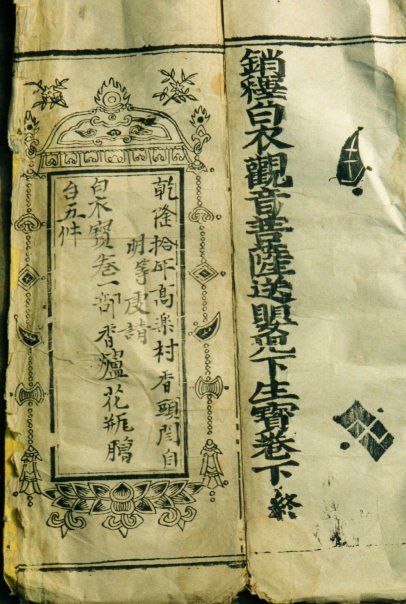 銷釋白衣觀音菩薩送嬰兒下生寶卷下終
乾隆拾年高楽村香頭閆自
明等虔請
白衣寶卷一部香爐花瓶臈
台五件